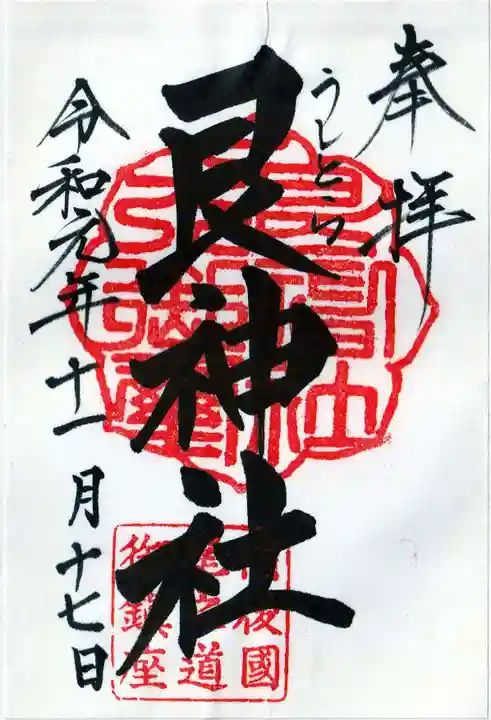 奉拝
うしとら
艮神社
令和元年十一月十七日
備後國
尾之道
御鎮座